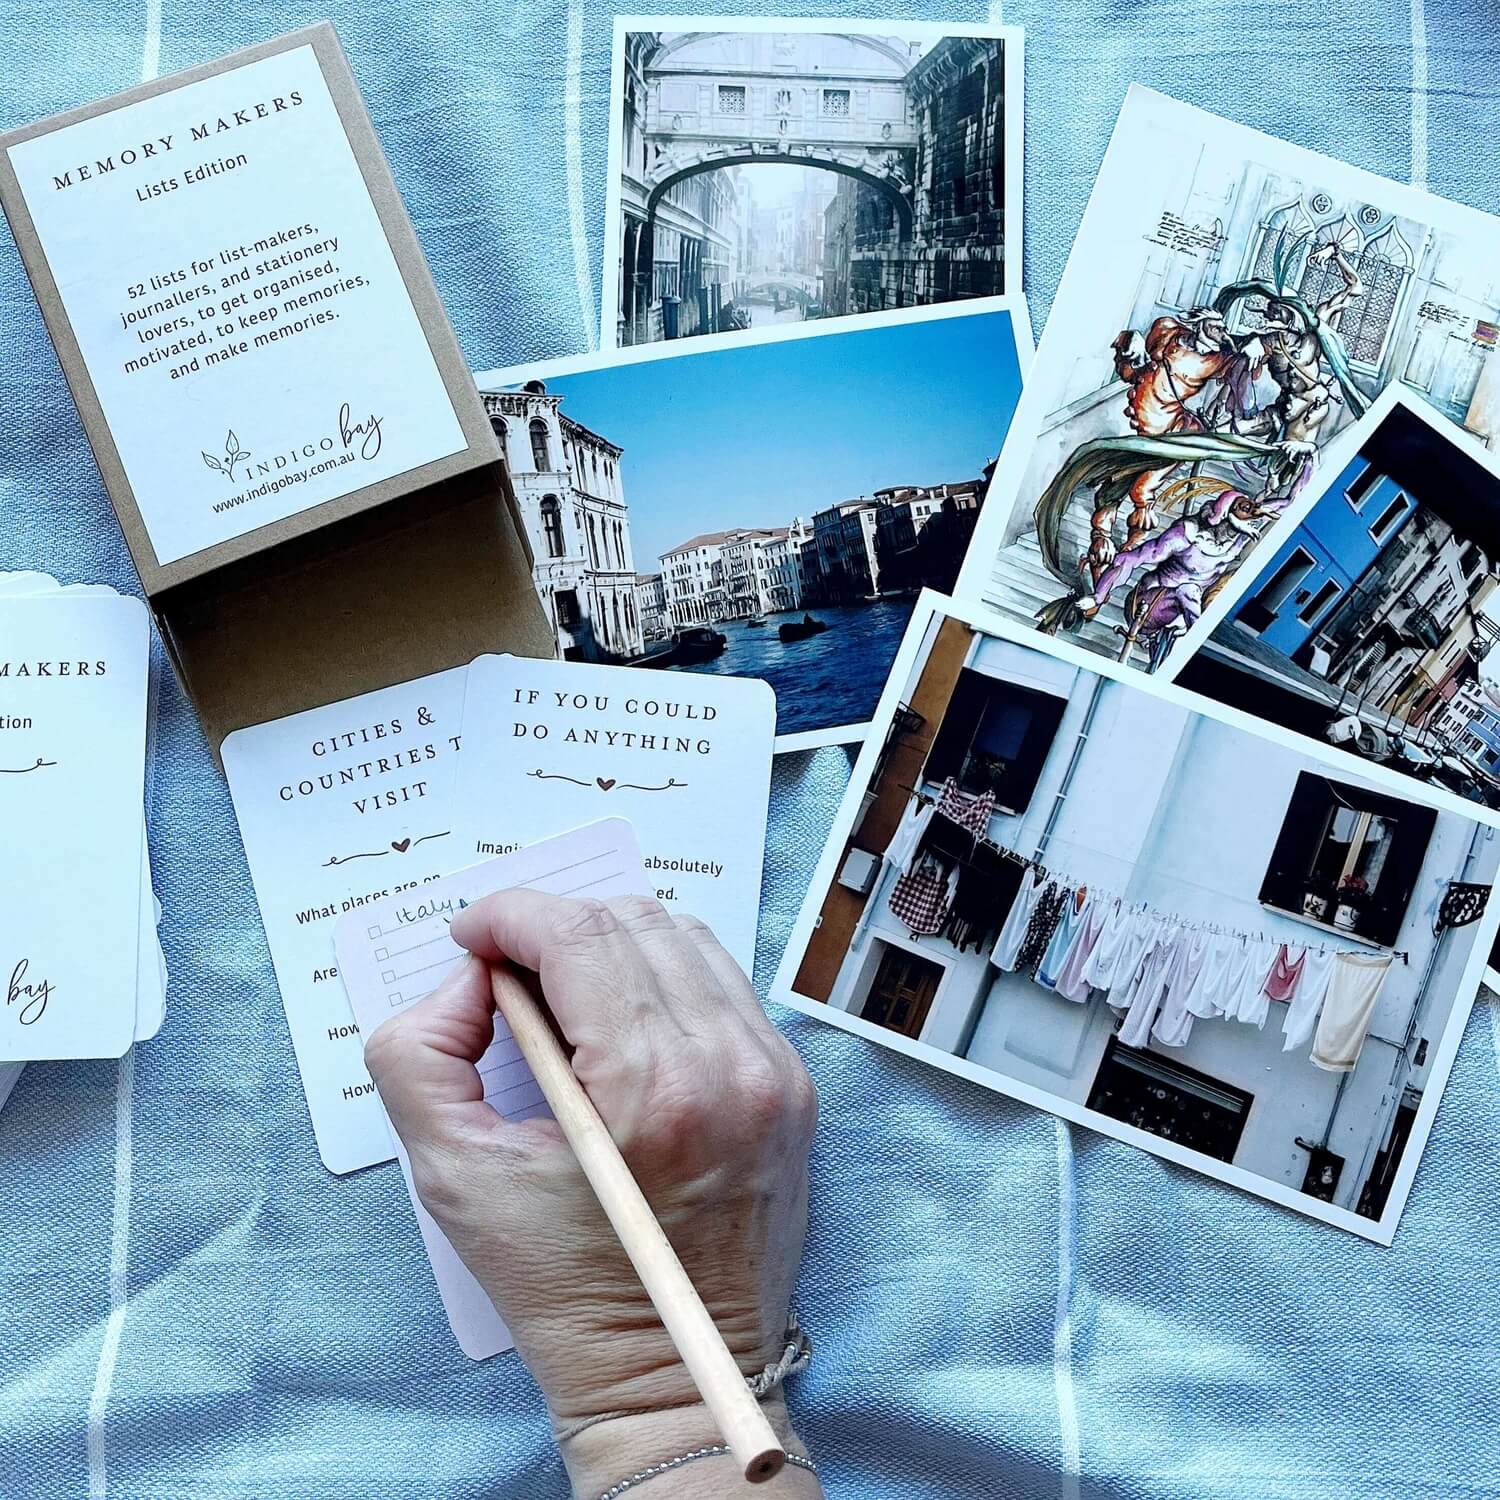 MEMORY MAKERS
Lists Edition
52 lists for list-makers,
journallers, and stationery
lovers, to get organised,
motivated, to keep memories,
and make memories.
INDIGO bay
www.indigobay.com.au
MAKERS
bay
CITIES &
COUNTRIES
VISIT
What places are on
Are
How
How
IF YOU COULD
DO ANYTHING
absolutely
Italy